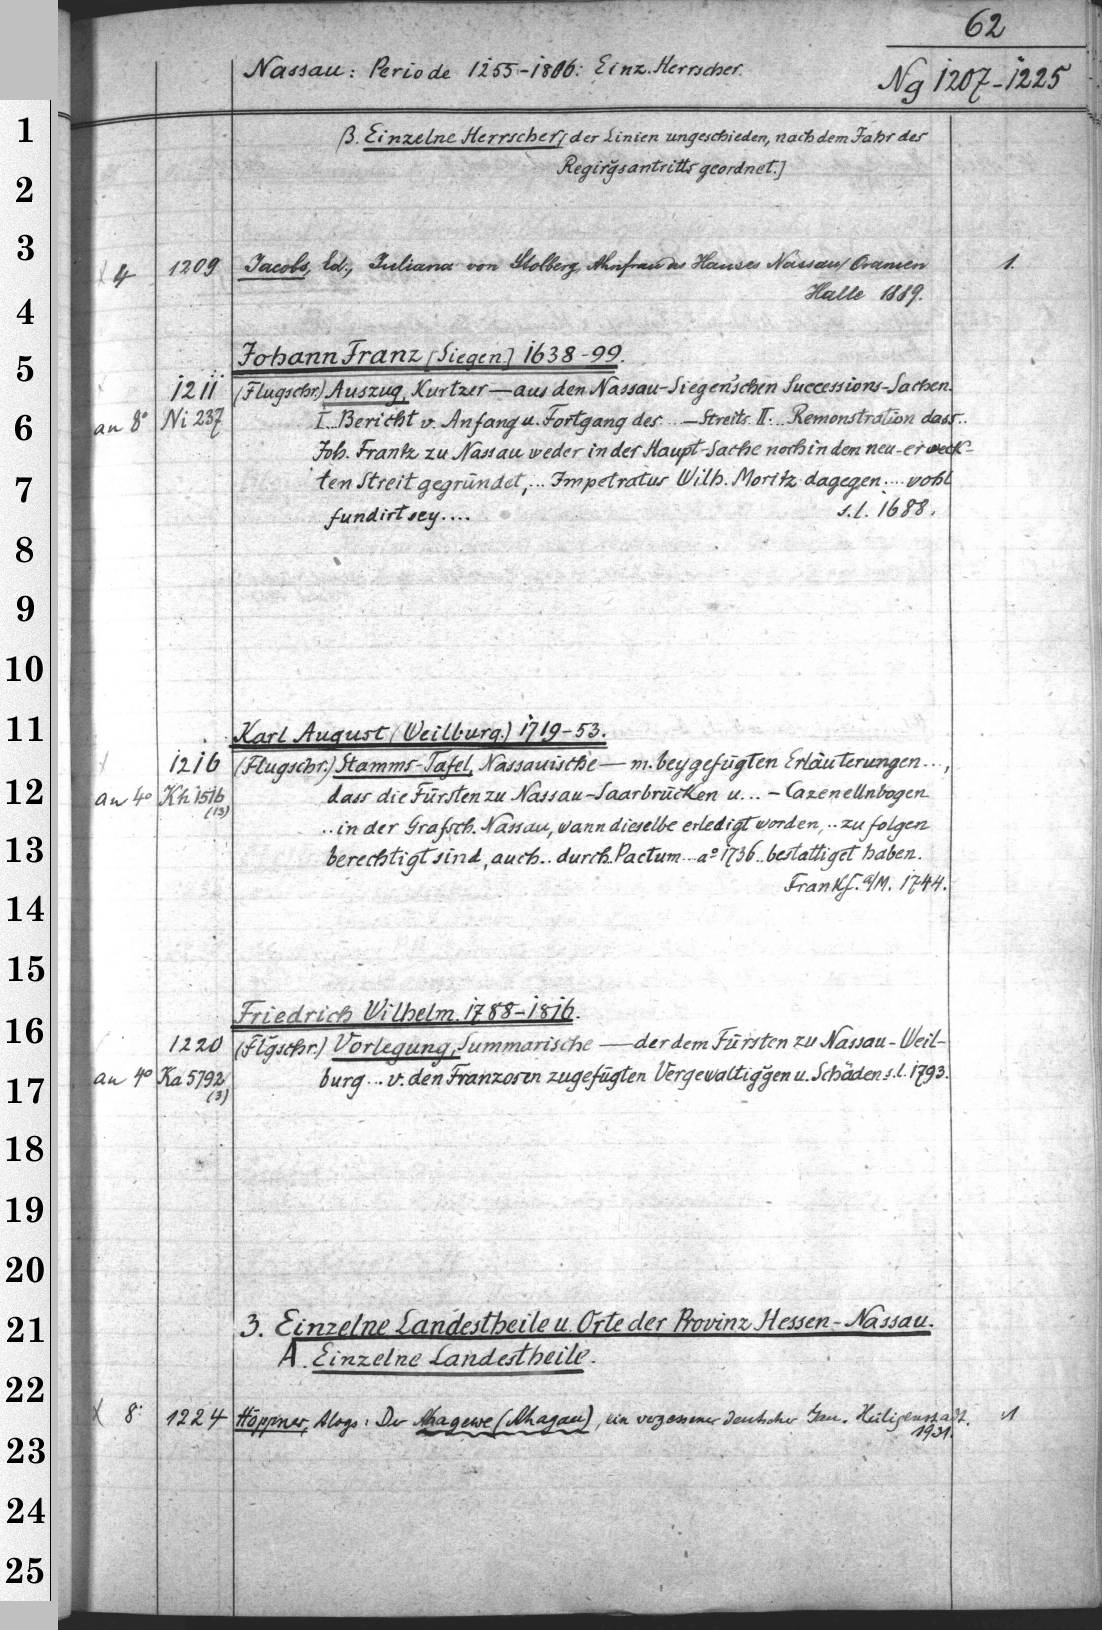 62
Nassau: Periode 1255-1806: Einz. Herrscher.
Ng 1207-1225
β. Einzelne Herrscher [der Linien ungeschieden, nach dem Jahr des
Regirgsantritts geordnet.]
4 1209 Jacobs, Ed., Juliana von Stolberg, Ahnfrau des Hauses Nassau/Oranien 1.
Halle 1889.
Johann Franz [Siegen.] 1638-99.
1211 (Flugschr.) Auszug, Kurtzer — aus den Nassau-Siegen'schen Successions-Sachen.
an 8° Ni 237 I... Bericht v. Anfang u. Fortgang des ... — Streits. II... Remonstration dass..
Joh. Frantz zu Nassau weder in der Haupt-Sache noch in dem neu-erweck-
ten Streit gegründet,... Impetratus Wilh. Moritz dagegen.... wohl
fundirt sey.... s.l. 1688.
Karl August (Weilburg.) 1719-53.
1216 (Flugschr.) Stamms-Tafel, Nassauische — m. beygefügten Erläuterungen...,
an 4° Kh 1516 dass die Fürsten zu Nassau-Saarbrücken u... - Cazenellnbogen
(13) ..in der Grafsch. Nassau, wann dieselbe erledigt worden,.. zu folgen
berechtigt sind, auch.. durch Pactum... a° 1736.. bestattiget haben.
Frankf. a/M. 1744.
Friedrich Wilhelm. 1788-1816.
1220 (Flgschr.) Vorlegung, Summarische — der dem Fürsten zu Nassau-Weil-
an 4° Ka 5792 burg... v. den Franzosen zugefügten Vergewaltiggen u. Schäden. s.l. 1793.
(3)
3. Einzelne Landestheile u. Orte der Provinz Hessen-Nassau.
A. Einzelne Landestheile.
X 8° 1224 Höppner, Aloys: Der Ahagewe (Ahagau), ein vergessener deutscher Gau. Heiligenstadt. 1
1931.
1
2
3
4
5
6
7
8
9
10
11
12
13
14
15
16
17
18
19
20
21
22
23
24
25